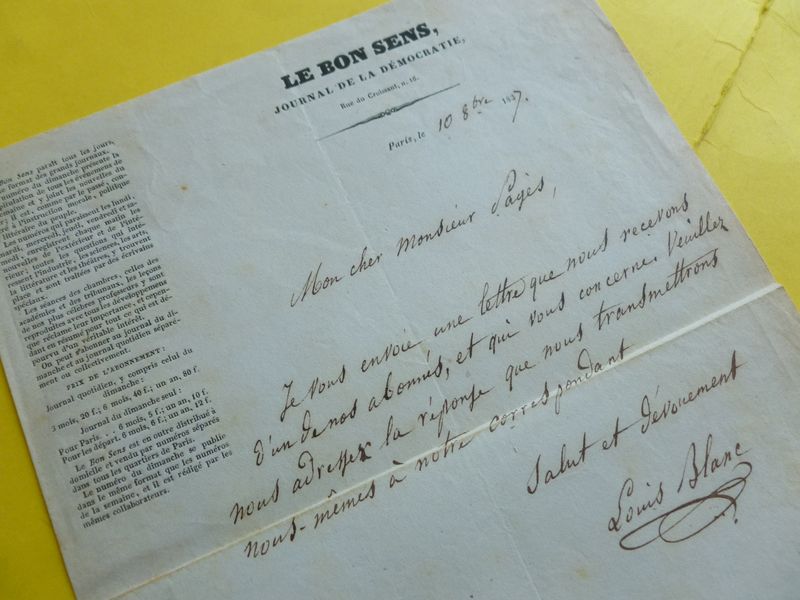 LE BON SENS,
JOURNAL DE LA DÉMOCRATIE,
Rue du Croissant, n. 16.
Paris, le 10 8bre 1837.
Bon Sens paraît tous les jours,
le format des grands journaux.
numéro du dimanche présente la
de tous les événemens de
semaine et y joint les nouvelles du
il est, comme par le passé, con-
à l'instruction morale, politique
littéraire du peuple.
Les numéros qui paraissent les lundi,
mardi, mercredi, jeudi, vendredi et sa-
medi, enregistrent chaque matin les
nouvelles de l'extérieur et de l'inté-
rieur; toutes les questions qui inté-
ressent l'industrie, les sciences, les arts,
la littérature et les théâtres, y trouvent
place, et sont traitées par des écrivains
spéciaux.
Les séances des chambres, celles des
académies et des tribunaux, les leçons
de nos plus célèbres professeurs y sont
reproduites avec tous les développemens
que réclame leur importance, et cepen-
dant en résumant tout ce qui est dé-
pourvu d'un véritable intérêt.
On peut s'abonner au journal du di-
manche et au journal quotidien séparé-
ment ou collectivement.
PRIX DE L'ABONNEMENT:
Journal quotidien, y compris celui du
dimanche:
3 mois, 20 f.; 6 mois, 40 f.; un an, 80 f.
Journal du dimanche seul:
Pour Paris. . . 6 mois, 5 f.; un an, 10 f.
Pour les départ. 6 mois, 6 f.; un an, 12 f.
Le Bon Sens est en outre distribué à
domicile et vendu par numéros séparés
dans tous les quartiers de Paris.
Le numéro du dimanche se publie
dans le même format que les numéros
de la semaine, et il est rédigé par les
mêmes collaborateurs.
Mon cher Monsieur Pagès,
Je vous envoie une lettre que nous recevons
d'un de nos abonnés, et qui vous concerne. Veuillez
nous adresser la réponse que nous transmettrons
nous-mêmes à notre correspondant
Salut et dévouement
Louis Blanc